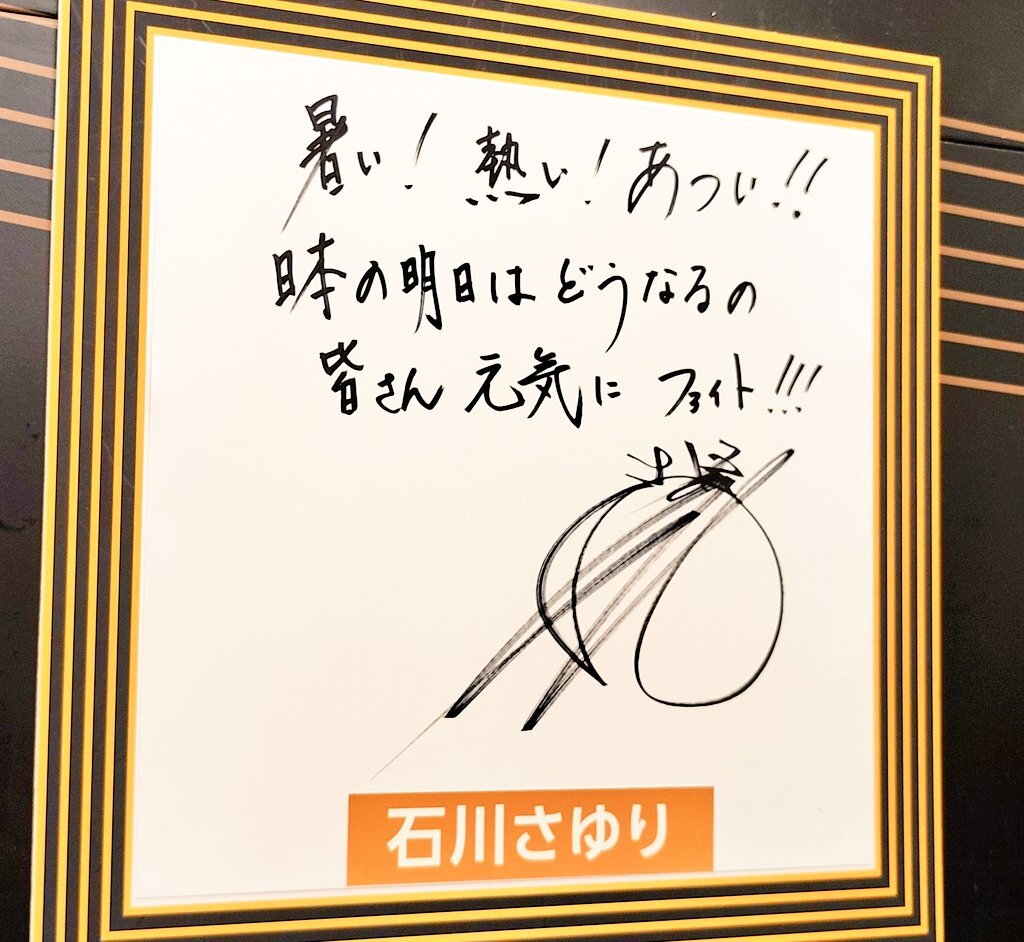 暑い! 熱い! あつい!!
日本の明日はどうなるの
皆さん 元気に ファイト!!!
石川さゆり